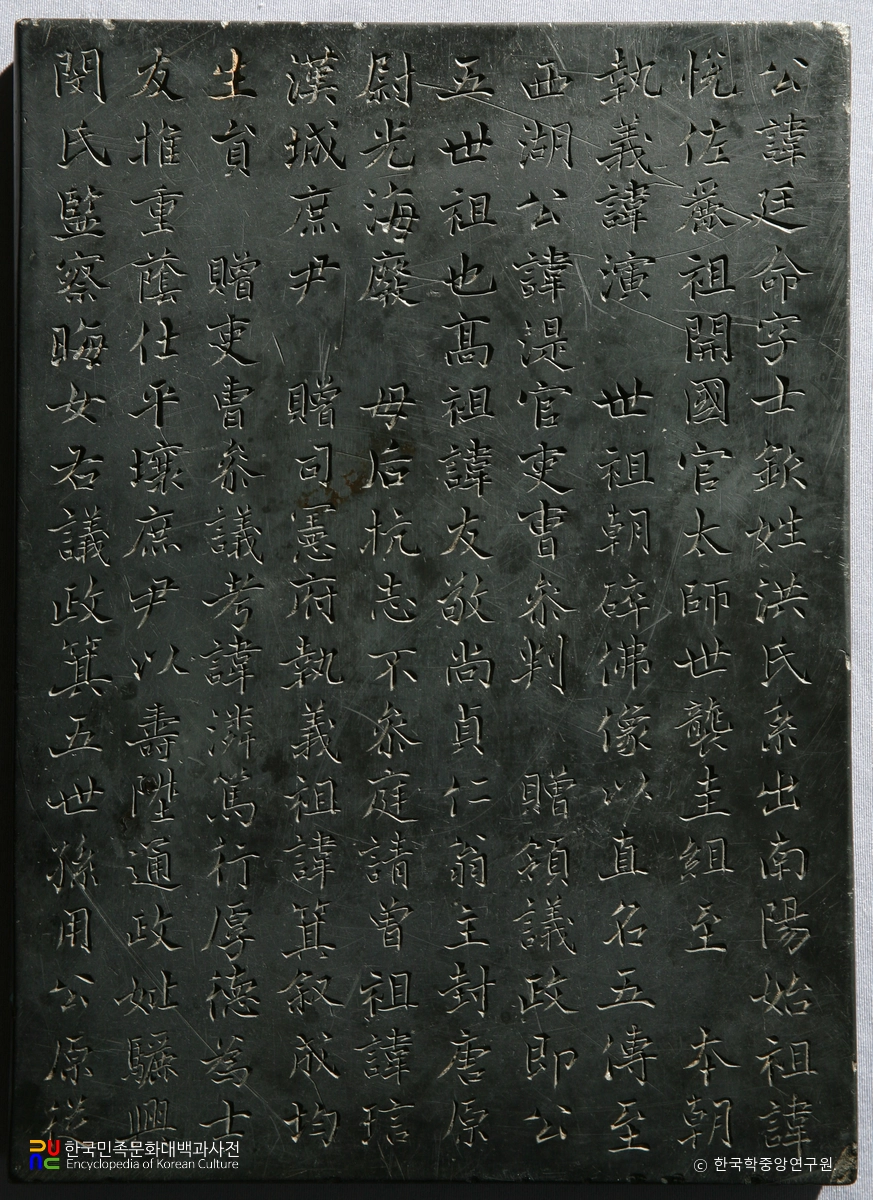 公諱廷命字士欽姓洪氏系出南陽始祖諱
悅佐麗祖開國官太師世襲圭組至 本朝
執義諱演 世祖朝碎佛像以直名五傳至
西湖公諱湜官吏曹參判 贈領議政即公
五世祖也高祖諱友敬尚貞仁翁主封唐原
尉光海廢 母后抗志不參庭請曾祖諱琂
漢城庶尹 贈司憲府執義祖諱箕叙成均
生員 贈吏曹參議考諱潾篤行厚德為士
友推重蔭仕平壤庶尹以壽陞通政妣驪興
閔氏監察晦女右議政箕五世孫用公原從
한국민족문화대백과사전
Encyclopedia of Korean Culture
ⓒ 한국학중앙연구원